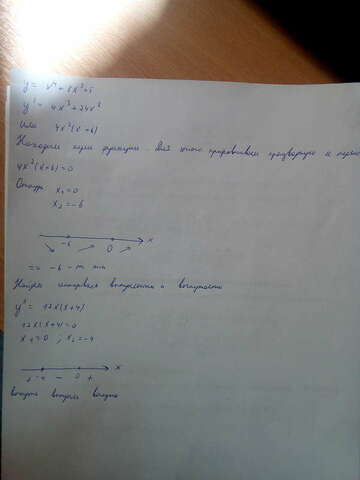 y = x⁴ + 8x³ + 5
y' = 4x³ + 24x²
или 4x²(x+6)
Находим нули функции. Для этого приравниваем производную к
4x²(x+6)=0
Откуда x₁=0
x₂=-6
-6 0 x
=> -6 - т. min
Найдем интервалы выпуклости и вогнутости
y" = 12x(x+4)
12x(x+4)=0
x₁=0 ; x₂=-4
x
+ -4 - 0 +
вогнута выпукла вогнута